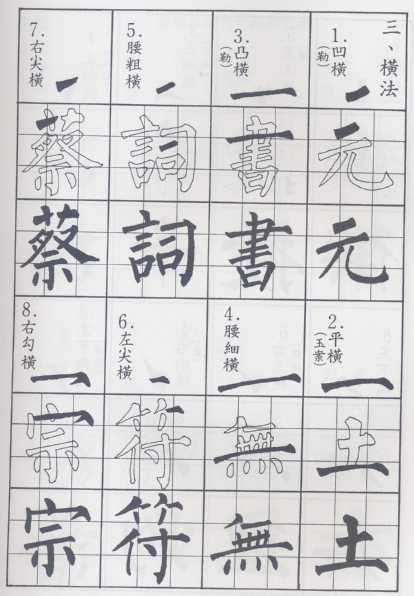 三、橫法
1.凹橫
(勒)
元
元
2.平橫
(玉案)
土
土
3.凸橫
(勒)
書
書
4.腰細橫
無
無
5.腰粗橫
詞
詞
6.左尖橫
符
符
7.右尖橫
蔡
蔡
8.右勾橫
宗
宗